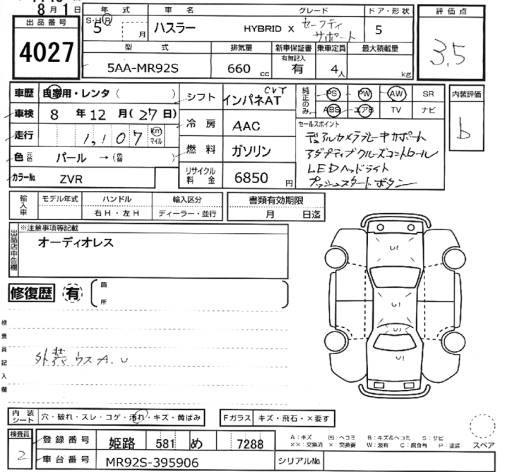 8月1日
出品番号 年式 車名 グレード ドア・形状 評価点
4027
S・H・R 5 年 月 ハスラー HYBRID X セーフティサポート 5
3.5
型式 排気量 新車保証書 有無記入 乗車定員 最大積載量
5AA-MR92S 660 cc 有 4人 kg
車歴 自家用・レンタ( )
シフト インパネAT CVT
装備のみ PS PW AW SR
ABS エアB TV ナビ
内装評価
b
車検 8年12月(27日)
冷房 AAC
セールスポイント
デュアルカメラブレーキサポート
アダプティブクルーズコントロール
LEDヘッドライト
プッシュスタートボタン
走行 1,107 km マイル
燃料 ガソリン
色 元色 パール →( 替)
カラーNo ZVR
リサイクル料金 6850円
輸入車 モデル年式 ハンドル 輸入区分 書類有効期限
右H・左H ディーラー・並行 月 日迄
出品店申告欄 ※注意事項等記載
オーディオレス
修復歴 有 箇所
検査員記入欄
外装ウスA.U
内装シート 穴・破れ・スレ・コゲ・汚れ・キズ・黄ばみ
Fガラス キズ・飛石・×要す
検査員 2
登録番号 姫路 581 め 7288
車台番号 MR92S-395906
シリアルNo
A:キズ U:ヘコミ B:キズ&ヘコミ S:サビ
スペア